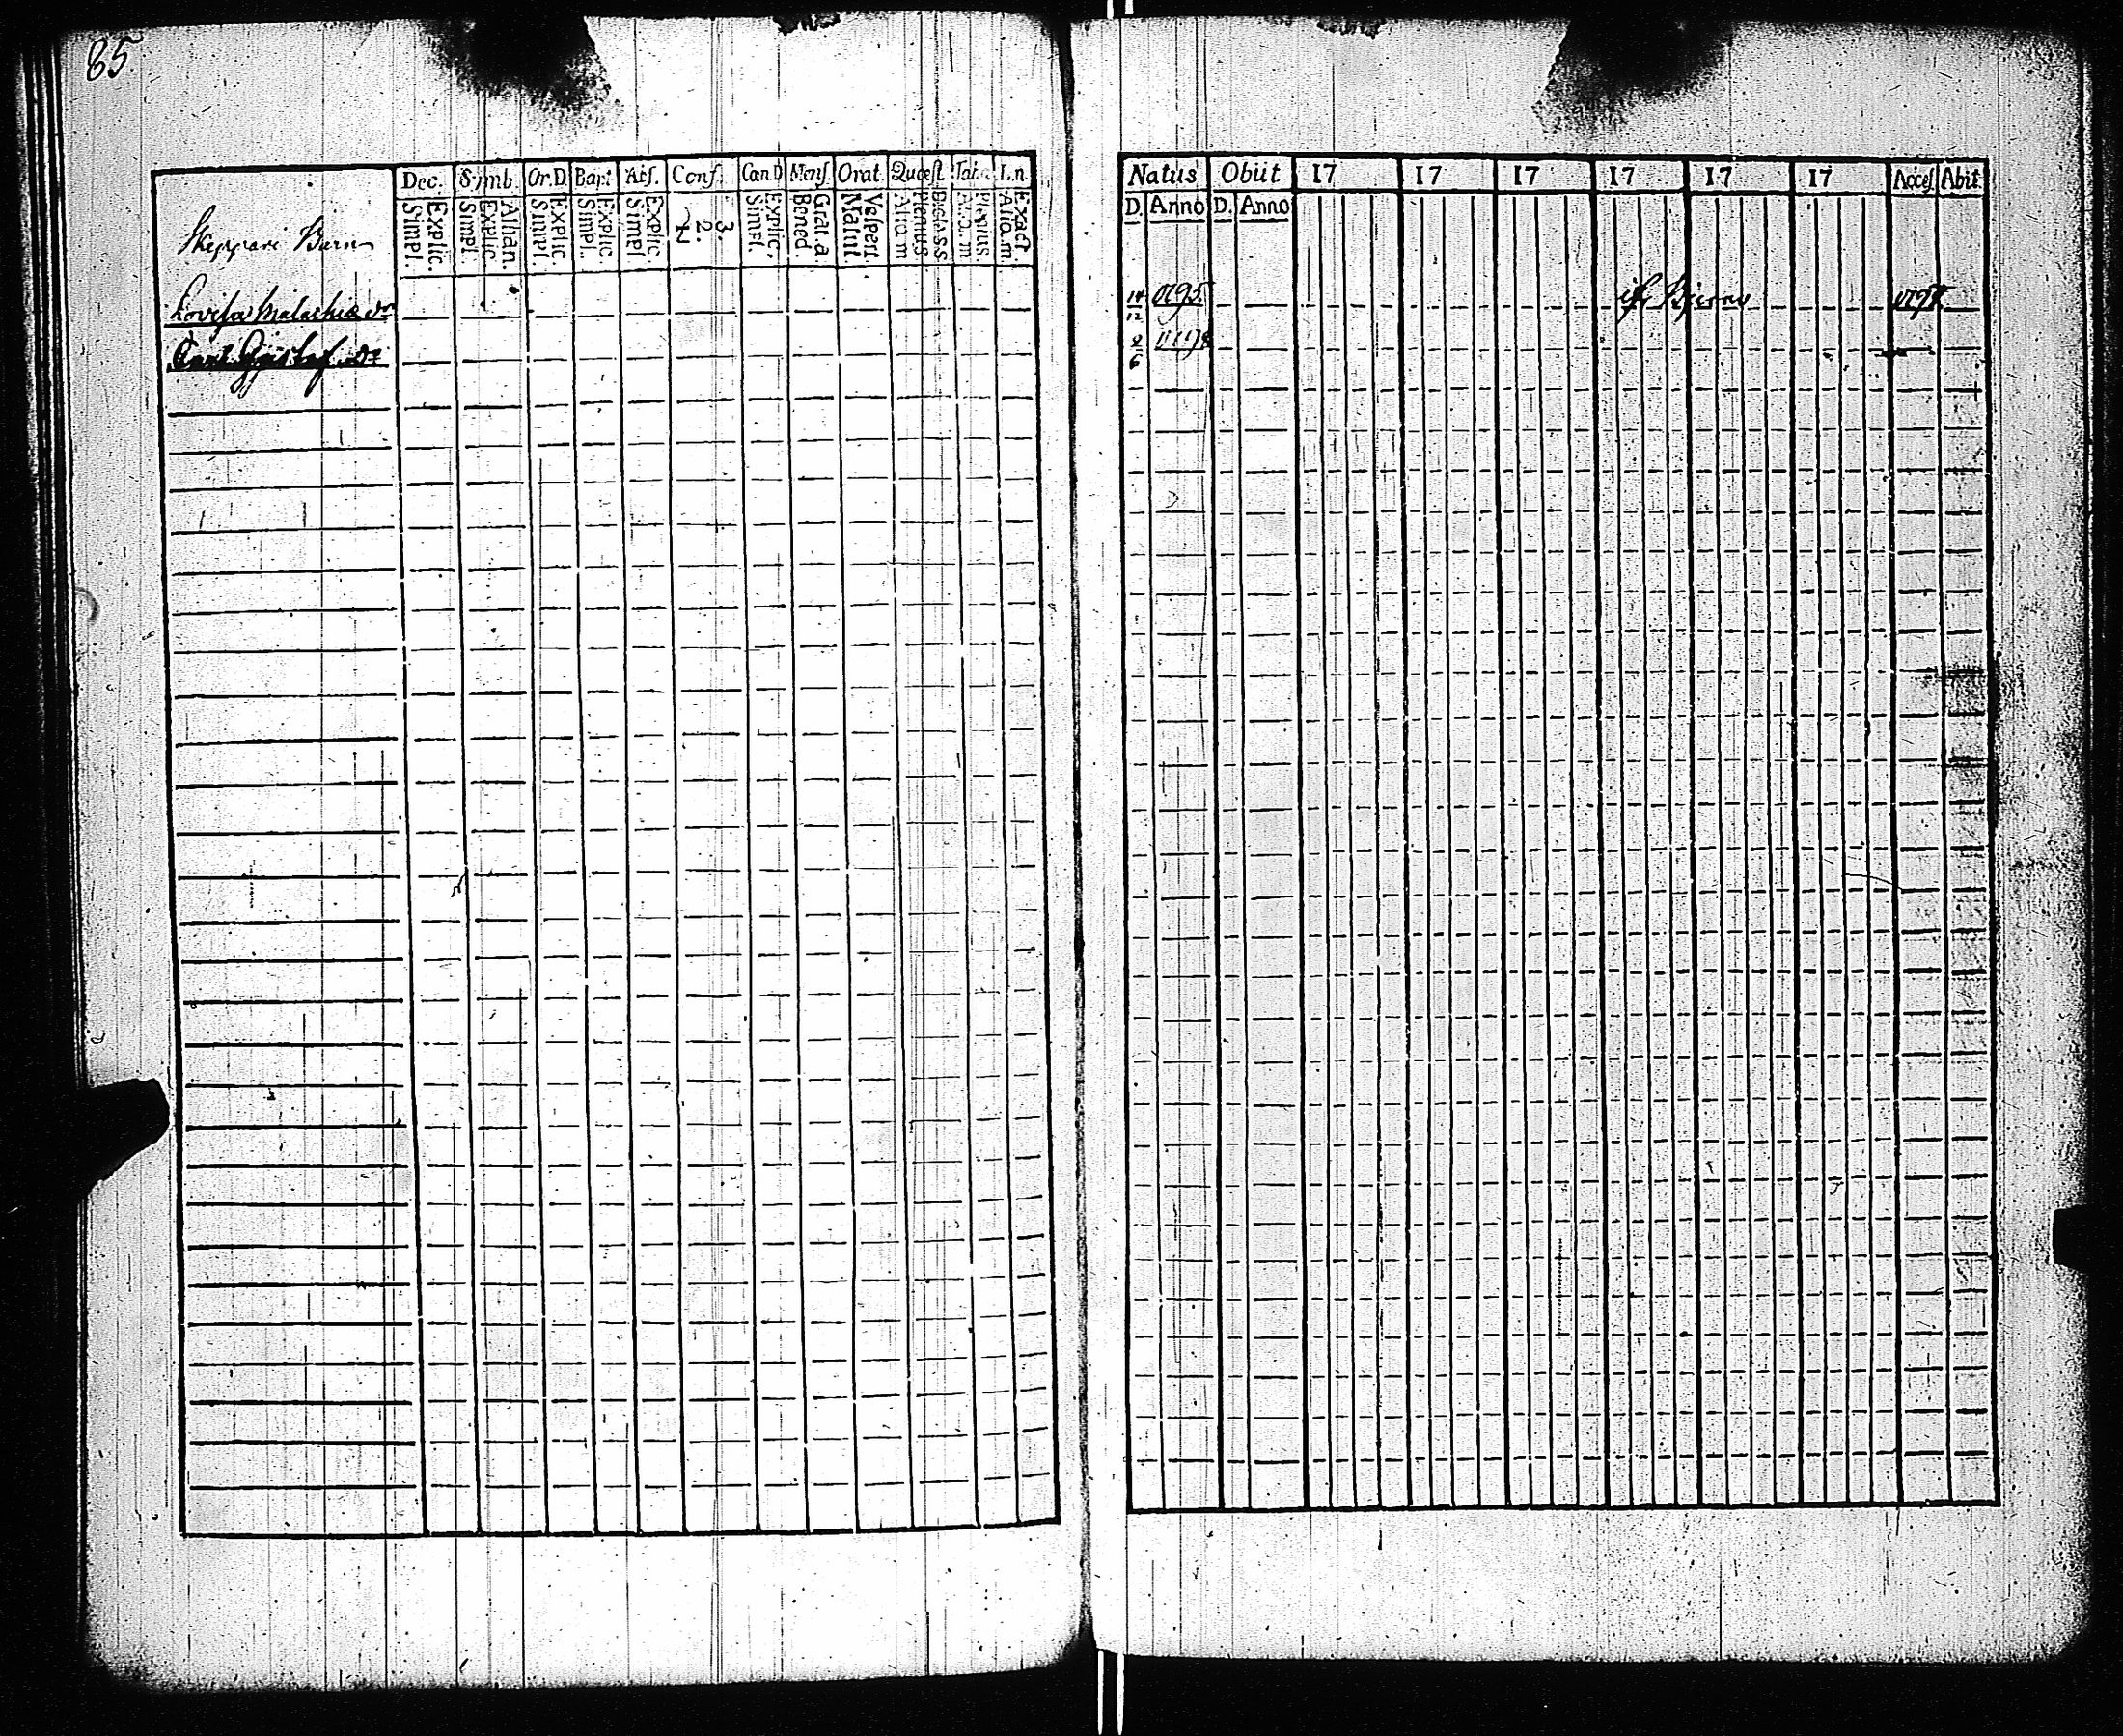 85
Dec. Symb. Or.D Bapt. Abs. Conf. Can.D Mens. Orat. Quæst. Tab. I.n.
Simpl. Explic. Simpl. Explic. Athan. Simpl. Explic. Simpl. Explic. Simpl. Explic. 1. 2. 3. Simpl. Explic. Bened. Grat.a. Matut. Vespert. Aliq.m Plenius Aliq.m Plenius. Aliq.m Exact.
Skeppare Barn
Lovisa Malachiæ dr
Carl Gustaf
Natus Obiit 17 17 17 17 17 17 Acces. Abit.
D. Anno D. Anno
14 12 1795. ifr. Bjerno 179
2 6 1798